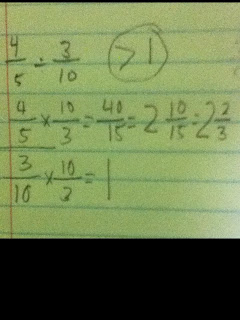 4/5 ÷ 3/10 > 1
4/5 × 10/3 = 40/15 = 2 10/15 = 2 2/3
3/10 × 10/3 = 1